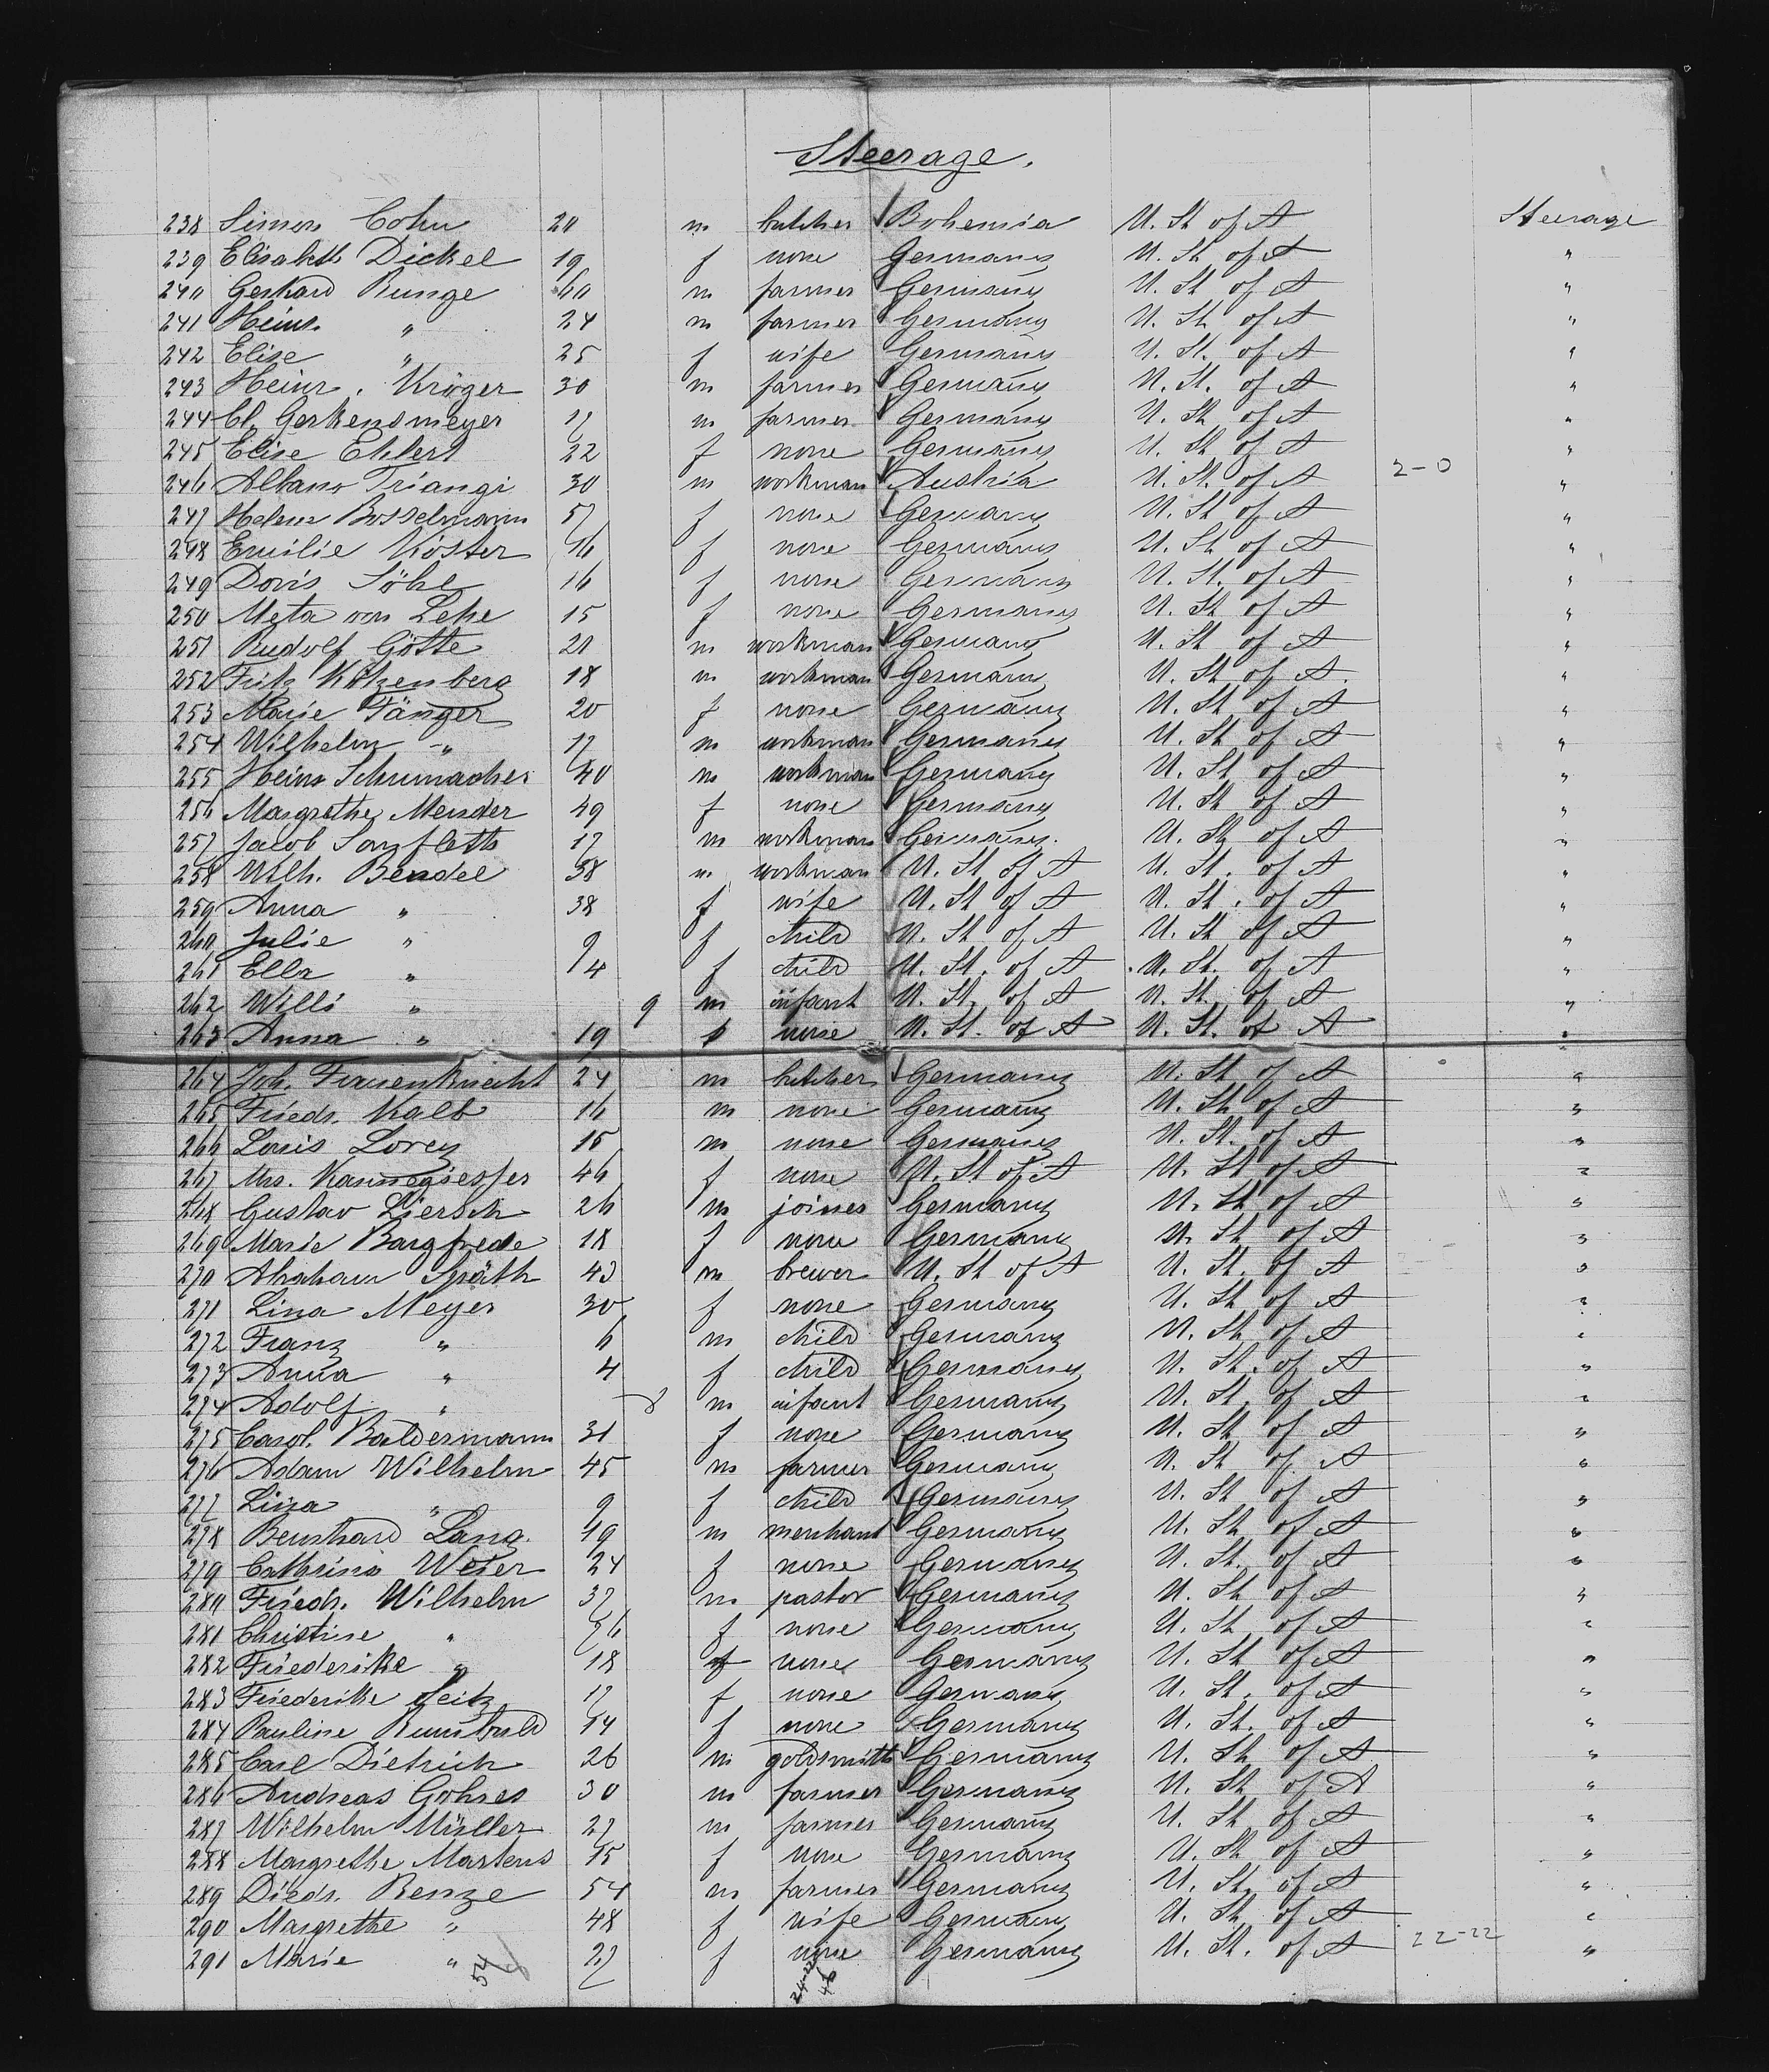 Steerage.
238 Simon Cohn 20 m butcher Bohemia U. St of A Steerage
239 Elisabeth Dickel 19 f none Germany U. St of A "
240 Gerhard Runge 60 m farmer Germany U. St of A "
241 Heinr. " 24 m farmer Germany U. St of A "
242 Elise " 25 f wife Germany U. St. of A "
243 Heinr. Kröger 30 m farmer Germany U. St. of A "
244 Cl. Gerkensmeyer 17 m farmer Germany U. St of A "
245 Elise Ehlert 22 f none Germany U. St of A "
246 Albano Triangi 30 m workman Austria U. St. of A 2-0 "
247 Helene Bosselmann 57 f none Germany U. St of A "
248 Emilie Köster 16 f none Germany U. St of A "
249 Doris Söhl 16 f none Germany U. St. of A "
250 Meta von Lehe 15 f none Germany U. St of A "
251 Rudolf Götte 21 m workman Germany U. St of A "
252 Fritz Kötzenberg 18 m workman Germany U. St of A. "
253 Marie Tänger 20 f none Germany U. St of A "
254 Wilhelm " 17 m workman Germany U. St of A "
255 Heinr Schumacher 40 m workman Germany U. St of A "
256 Margrethe Meuder 49 f none Germany U. St of A "
257 Jacob Samfleth 17 m workman Germany. U. St of A "
258 Wilh. Bendel 38 m workman U. St of A U. St. of A "
259 Anna " 38 f wife U. St of A U. St. of A "
260 Julie " 9 f child U. St of A U. St of A "
261 Ella " 4 f child U. St. of A U. St. of A "
262 Willi " 9 m infant U. St. of A U. St. of A "
263 Anna " 19 f none U. St. of A U. St. of A "
264 Joh. Frauenknecht 24 m butcher Germany U. St of A "
265 Friedr. Kalb 16 m none Germany U. St of A "
266 Louis Lorey 15 m none Germany U. St. of A "
267 Mrs. Kannegiesser 46 f none U. St of A U. St of A "
268 Gustav Liersch 26 m joiner Germany U. St of A "
269 Marie Bargfrede 18 f none Germany U. St of A "
270 Abraham Späth 43 m brewer U. St of A U. St. of A "
271 Lina Meyer 30 f none Germany U. St of A "
272 Franz " 6 m child Germany U. St of A "
273 Anna " 4 f child Germany U. St. of A "
274 Adolf " 8 m infant Germany U. St. of A "
275 Carol. Baldermann 31 f none Germany U. St of A "
276 Adam Wilhelm 45 m farmer Germany U. St of A "
277 Lina " 9 f child Germany U. St of A "
278 Bernhard Lang. 19 m merchant Germany U. St of A "
279 Cathrina Weier 24 f none Germany U. St. of A "
280 Friedr. Wilhelm 37 m pastor Germany U. St of A "
281 Christine " 26 f none Germany U. St of A "
282 Friederike " 18 f none Germany U. St of A "
283 Friederike Seitz 17 f none Germany U. St. of A "
284 Pauline Rumbuld 14 f none Germany U. St. of A "
285 Carl Dietrich 26 m goldsmith Germany U. St of A "
286 Andreas Gohres 30 m farmer Germany U. St of A "
287 Wilhelm Müller 27 m farmer Germany U. St of A "
288 Margrethe Martens 15 f none Germany U. St of A "
289 Diedr. Renze 54 m farmer Germany U. St. of A "
290 Margrethe " 48 f wife Germany U. St of A "
291 Marie " 27 f none Germany U. St. of A 22-22 "
54
24-22
46